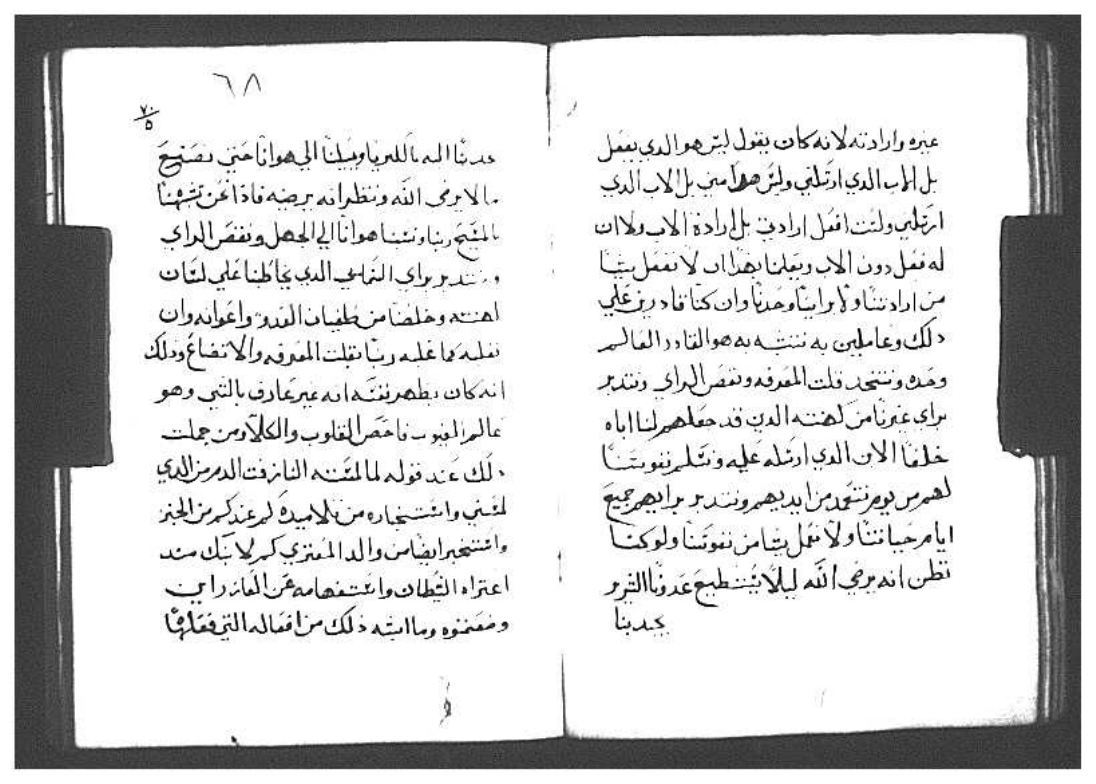 غيره وارادته لانه كان يقول ليس هو الذي يفعل
بل الاب الذي ارسلني وليس هذا مني بل الاب الذي
ارسلني ولست افعل ارادتي بل ارادة الاب ولا ان
له فعل دون الاب ويعلمنا بهذا ان لا نفعل شيا
من ارادتنا ولا براينا وحدنا وان كنا قادرين علي
ذلك وعاملين به نتشبه به هو القادر العالم
وحده ونتخد قلت المعرفه ونقص الراي ونتدبر
براي غيرنا من كهنته الدين قد جعلهم لنا اباه
خلفا الابن الذي ارسله عليه ونسلم نفوسنا
لهم من يوم نتعمد من ايديهم ونتدبر برايهم جميع
ايام حياتنا ولا نعمل شيا من نفوسنا ولو كنا
نظن انه يرضي الله ليلا يستطيع عدونا الشرير
يجدبنا
٦٨
٧٠
٥
جدبنا اليه بالكبريا ويميلنا الي هوانا حتي نصنع
ما لا يرضي الله ونظن انه يرضيه فاذا نحن تشبهنا
بالمسيح ربنا ونسبنا هوانا الي الجهل ونقص الراي
ونتدبر براي السماي الدي يخاطبنا علي لسان
كهنته وخلصنا من طغيان العدو واعوانه وان
نغلبه كما غلبه ربنا بقلت المعرفه والاتضاع وذلك
انه كان يظهر نفسه انه غير عارف بالشي وهو
عالم الغيوب فاحص القلوب والكلا ومن جملت
ذلك عند قوله لما لمسته النازفت الدم من الدي
لمسني واستخباره من تلاميده كم عندكم من الخبز
واستخبر ايضا من والد المعتري كم لابنك مند
اعتراه الشيطان واستفهامه عن العازر اين
وضعتموه وما اشبه ذلك من افعاله التي فعلها